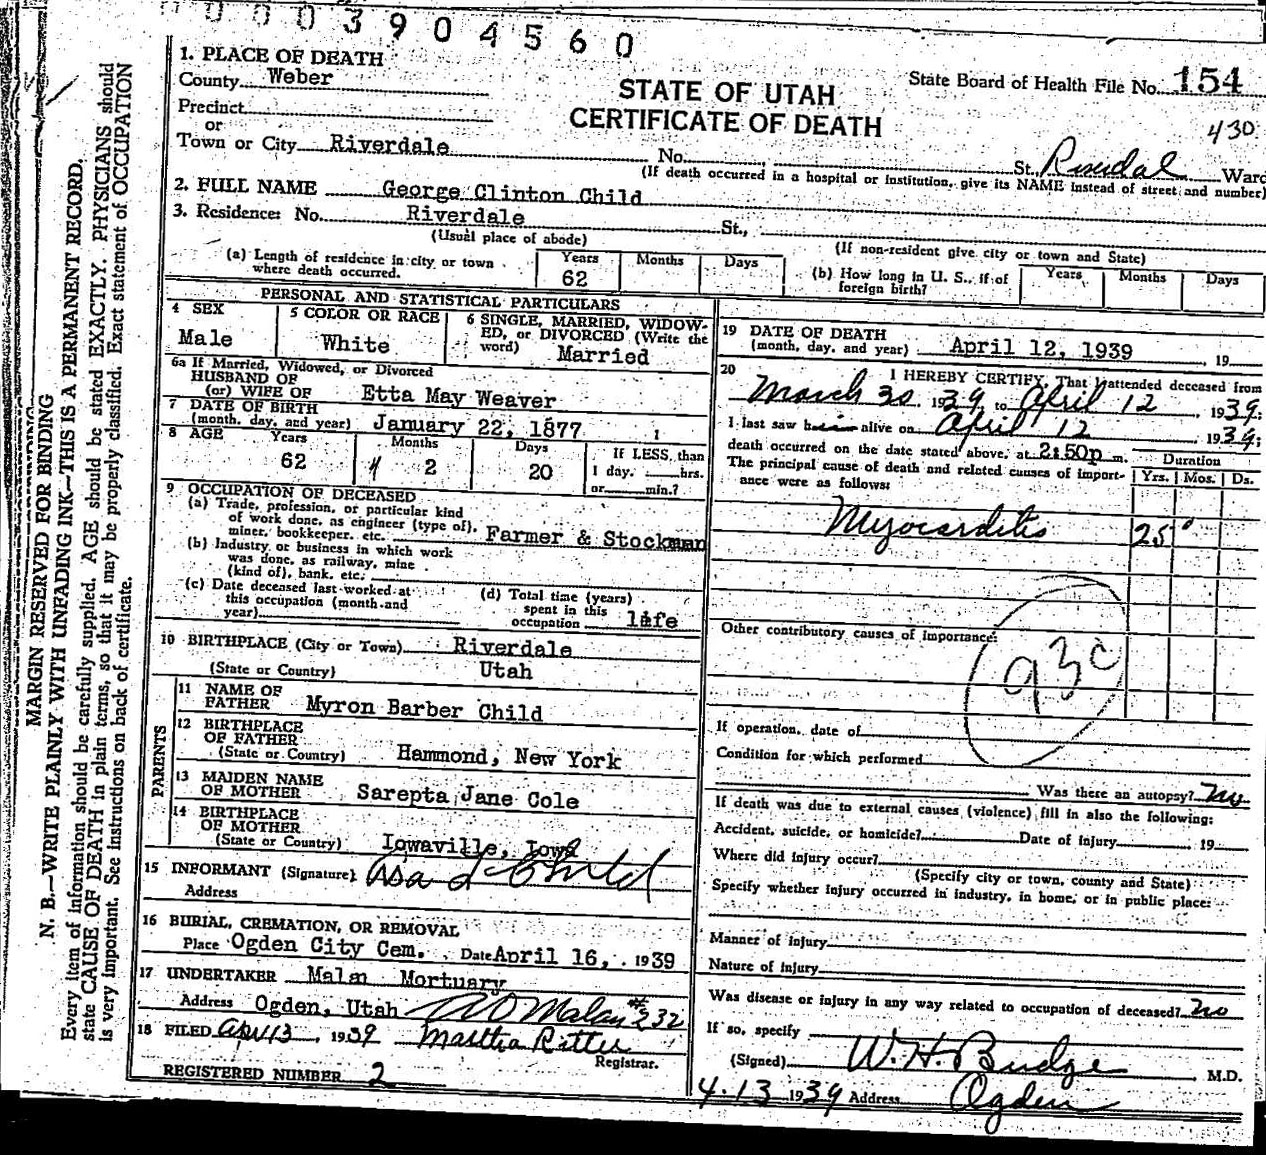 00003904560
1. PLACE OF DEATH
County Weber
STATE OF UTAH
CERTIFICATE OF DEATH
State Board of Health File No. 154
430
Precinct
or
Town or City Riverdale No. St., Riverdal Ward
(If death occurred in a hospital or institution, give its NAME instead of street and number)
2. FULL NAME George Clinton Child
3. Residence: No. Riverdale St.,
(Usual place of abode) (If non-resident give city or town and State)
(a) Length of residence in city or town where death occurred. Years 62 Months Days
(b) How long in U. S., if of foreign birth? Years Months Days
PERSONAL AND STATISTICAL PARTICULARS
4 SEX
Male
5 COLOR OR RACE
White
6 SINGLE, MARRIED, WIDOW-
ED, or DIVORCED (Write the
word) Married
6a If Married, Widowed, or Divorced
HUSBAND OF
(or) WIFE OF Etta May Weaver
7 DATE OF BIRTH
(month, day, and year) January 22, 1877
8 AGE Years Months Days
62 2 20
If LESS than
1 day, hrs.
or min.?
9 OCCUPATION OF DECEASED
(a) Trade, profession, or particular kind
of work done, as engineer (type of),
miner, bookkeeper, etc. Farmer & Stockman
(b) Industry or business in which work
was done, as railway, mine
(kind of), bank, etc.
(c) Date deceased last worked at
this occupation (month and
year)
(d) Total time (years)
spent in this
occupation life
10 BIRTHPLACE (City or Town) Riverdale
(State or Country) Utah
PARENTS
11 NAME OF
FATHER Myron Barber Child
12 BIRTHPLACE
OF FATHER
(State or Country) Hammond, New York
13 MAIDEN NAME
OF MOTHER Sarepta Jane Cole
14 BIRTHPLACE
OF MOTHER
(State or Country) Iowaville, Iowa
15 INFORMANT (Signature) Asa L Child
Address
16 BURIAL, CREMATION, OR REMOVAL
Place Ogden City Cem. Date April 16, 1939
17 UNDERTAKER Malan Mortuary
Address Ogden, Utah A O Malan #232
18 FILED Apr 13, 1939 Martha Ritter
Registrar.
REGISTERED NUMBER 2
19 DATE OF DEATH
(month, day, and year) April 12, 1939, 19
20 I HEREBY CERTIFY, That I attended deceased from
March 30 1939 to April 12 1939;
I last saw him alive on April 12 1939;
death occurred on the date stated above, at 2:50p m.
The principal cause of death and related causes of import-
ance were as follows:
Duration
Yrs. Mos. Ds.
Myocarditis 25
Other contributory causes of importance:
93c
If operation, date of
Condition for which performed
Was there an autopsy? No
If death was due to external causes (violence) fill in also the following:
Accident, suicide, or homicide? Date of injury 19
Where did injury occur?
(Specify city or town, county and State)
Specify whether injury occurred in industry, in home, or in public place:
Manner of injury
Nature of injury
Was disease or injury in any way related to occupation of deceased? No
If so, specify
(Signed) W. H. Budge M.D.
4-13 1939 Address Ogden
MARGIN RESERVED FOR BINDING
N. B.—WRITE PLAINLY WITH UNFADING INK—THIS IS A PERMANENT RECORD.
Every item of information should be carefully supplied. AGE should be stated EXACTLY. PHYSICIANS should
state CAUSE OF DEATH in plain terms, so that it may be properly classified. Exact statement of OCCUPATION
is very important. See instructions on back of certificate.